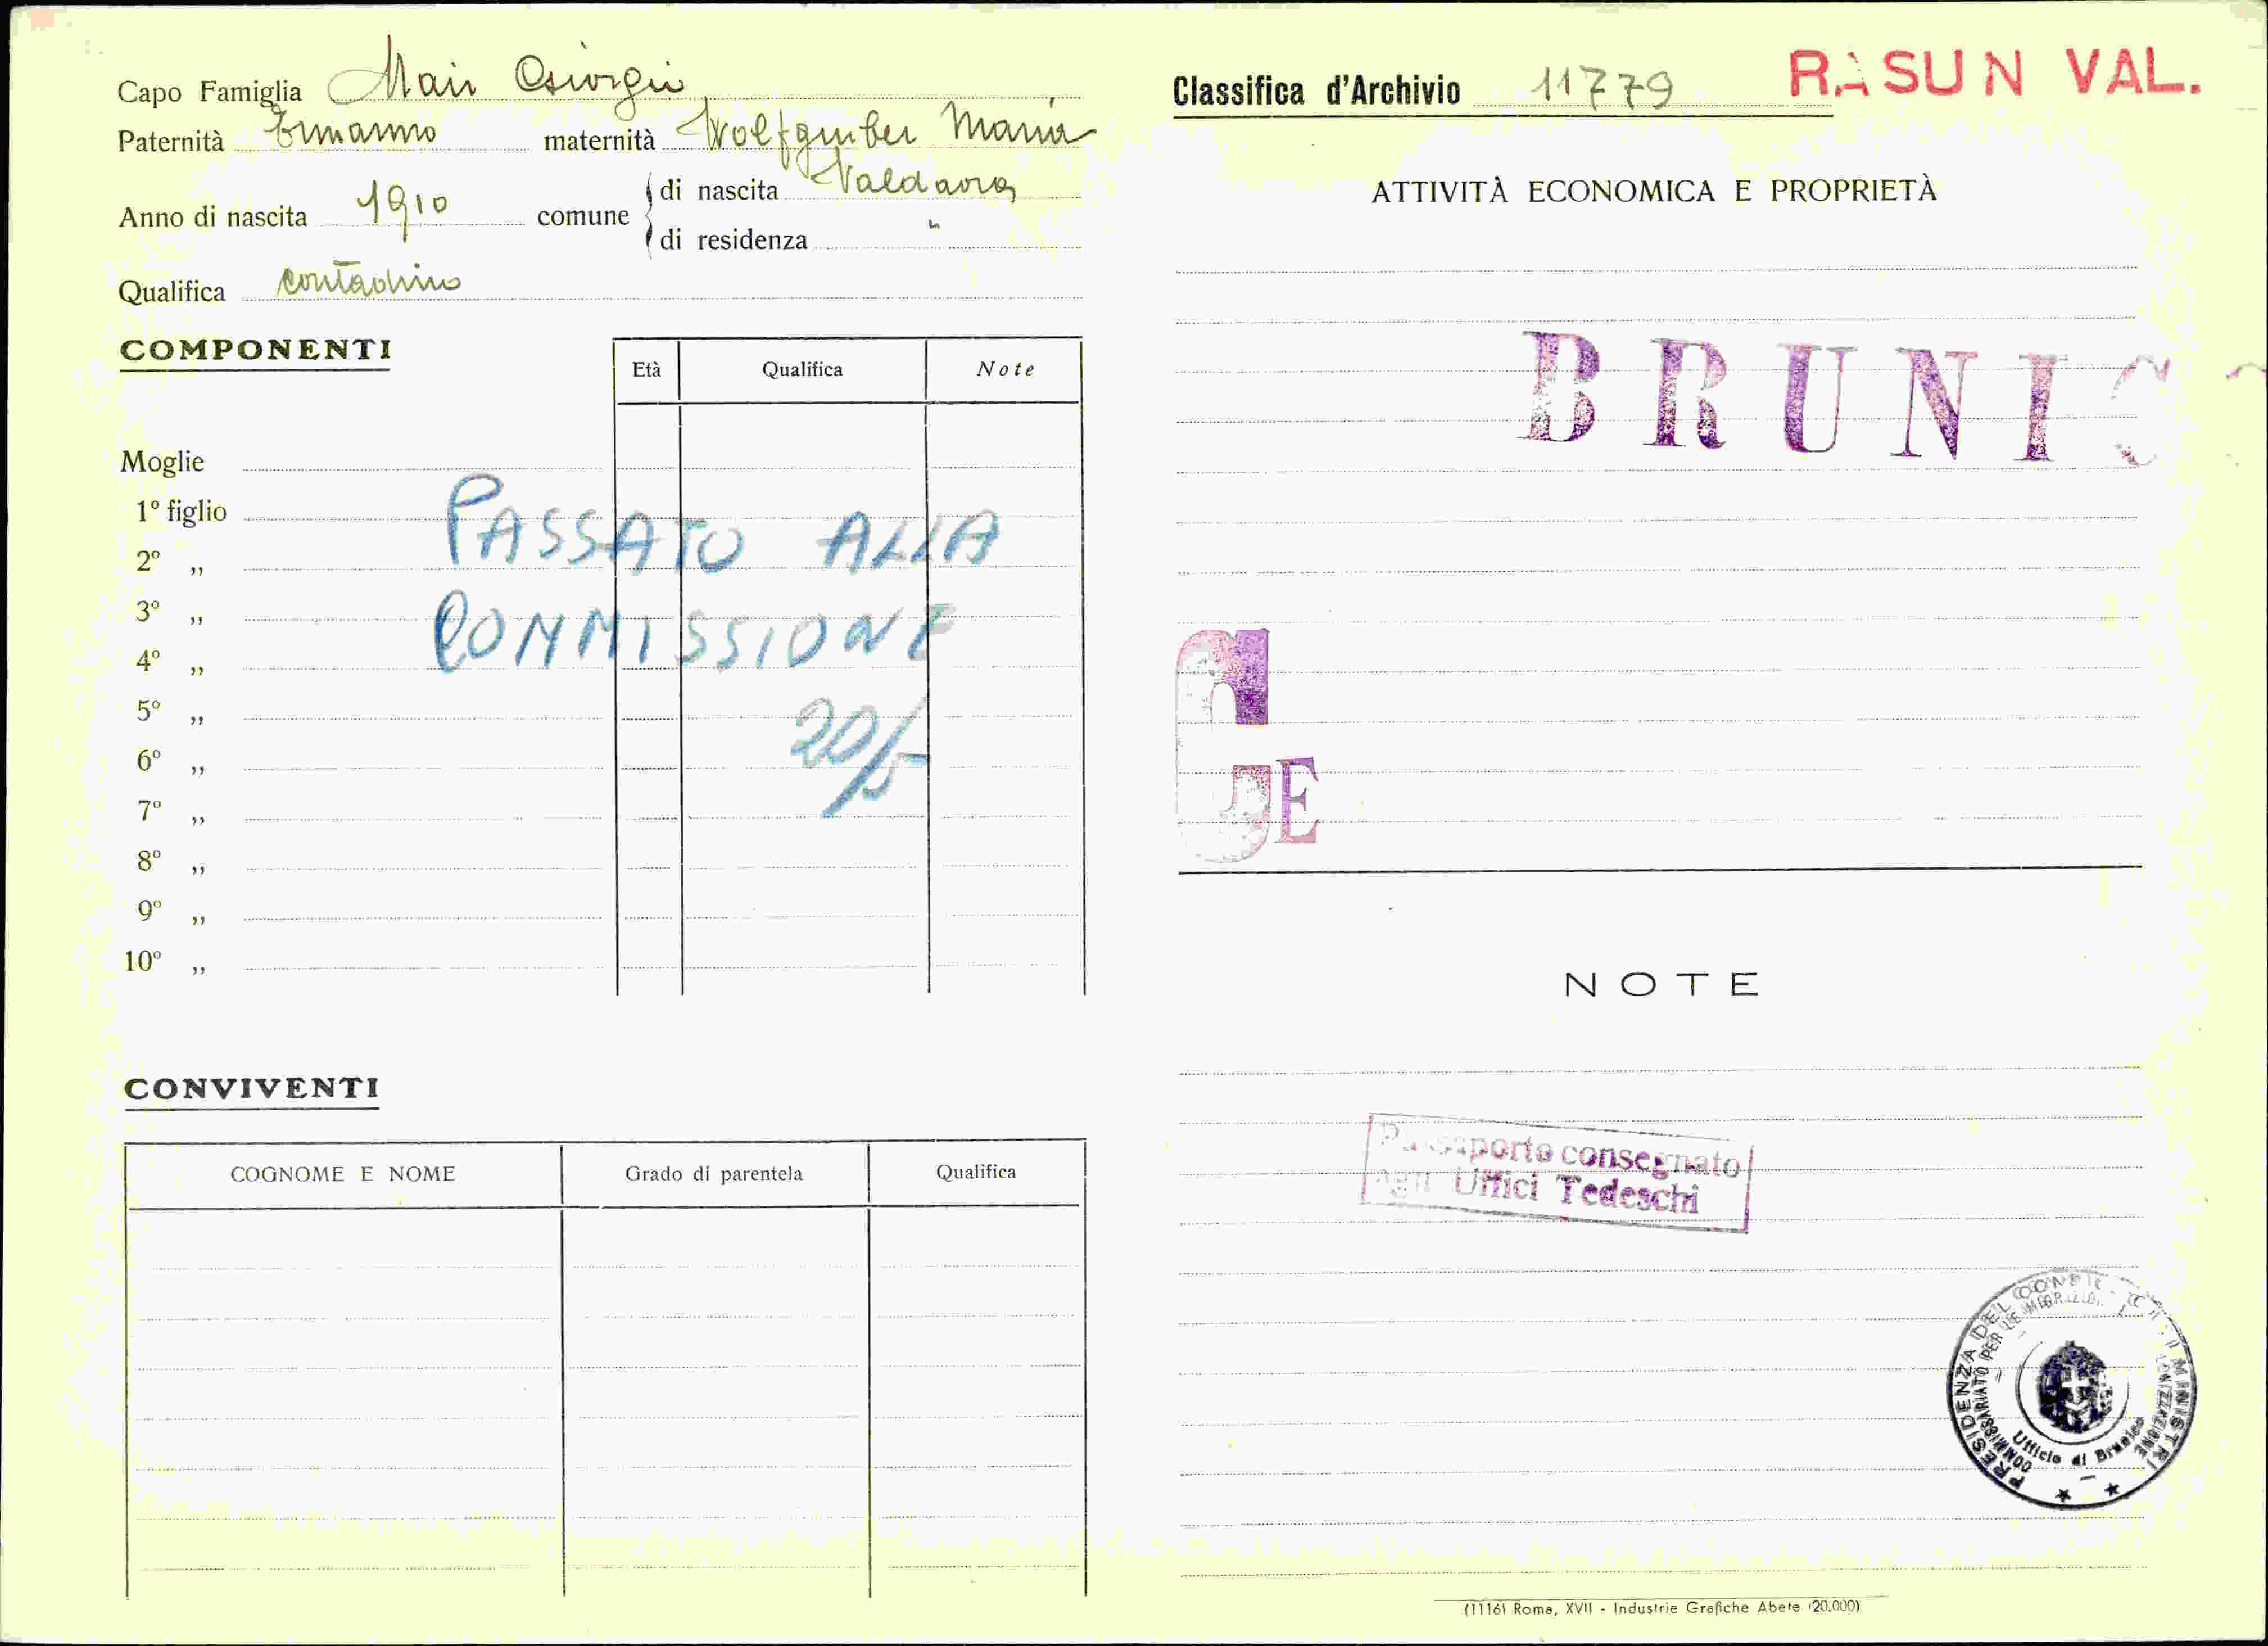 Capo Famiglia Mair Giorgio
Paternità Ermanno maternità Wolfgruber Maria
Anno di nascita 1910 comune di nascita Valdaora
di residenza "
Qualifica contadino
COMPONENTI
Età Qualifica Note
Moglie
1º figlio
2º „
3º „
4º „
5º „
6º „
7º „
8º „
9º „
10º „
PASSATO ALLA
COMMISSIONE
20/5
CONVIVENTI
COGNOME E NOME Grado di parentela Qualifica
Classifica d'Archivio 11779
RASUN VAL.
ATTIVITÀ ECONOMICA E PROPRIETÀ
BRUNIC
E
NOTE
Passaporto consegnato
agli Uffici Tedeschi
PRESIDENZA DEL CONSIGLIO DEI MINISTRI
COMMISSARIATO PER LE MIGRAZIONI COLONIZZAZIONE
Ufficio di Brunico
(11161 Roma, XVII - Industrie Grafiche Abete (20.000)